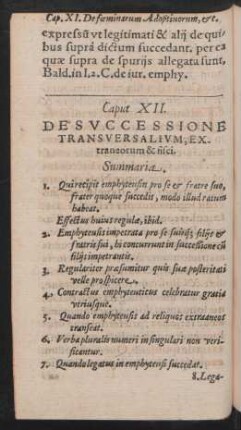 Cap. XI. De fœminarum Adoptiuorum, &c.
expressũ vt legitimati & alij de quibus
suprà dictum succedant. per ea
quæ supra de spurijs allegata sunt,
Bald. in l.2. C. de iur. emphy.
Caput XII.
DE SVCCESSIONE
TRANSVERSALIVM, EX-
traneorum & fisci.
Summaria.
1. Qui recipit emphyteusin pro se & fratre suo,
frater quoque succedit, modo illud ratum
habeat.
Effectus huius regulæ, ibid.
2. Emphyteusis impetrata pro se suisq́; filijs &
fratris sui, hi concurrunt in successione cũ
filijs impetrantis.
3. Regulariter præsumitur quis suæ posteritati
velle prospicere.
4. Contractus emphyteuticus celebratur gratia
vtriusque.
5. Quando emphyteusis ad reliquos extraneos
transeat.
6. Verba pluralis numeri in singulari non veri-
ficantur.
7. Quando legatus in emphyteusi succedat.
8. Lega-